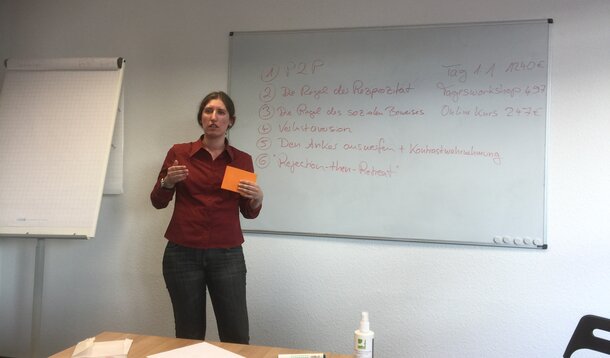 ① P2P Tag 1:1 1240€
② Die Regel der Reziprozität Tagesworkshop 497
③ Die Regel des sozialen Beweises Online Kurs 247€
④ Verlustaversion
⑤ Den Anker auswerfen + Kontrastwahrnehmung
⑥ "Rejection-then-Retreat"